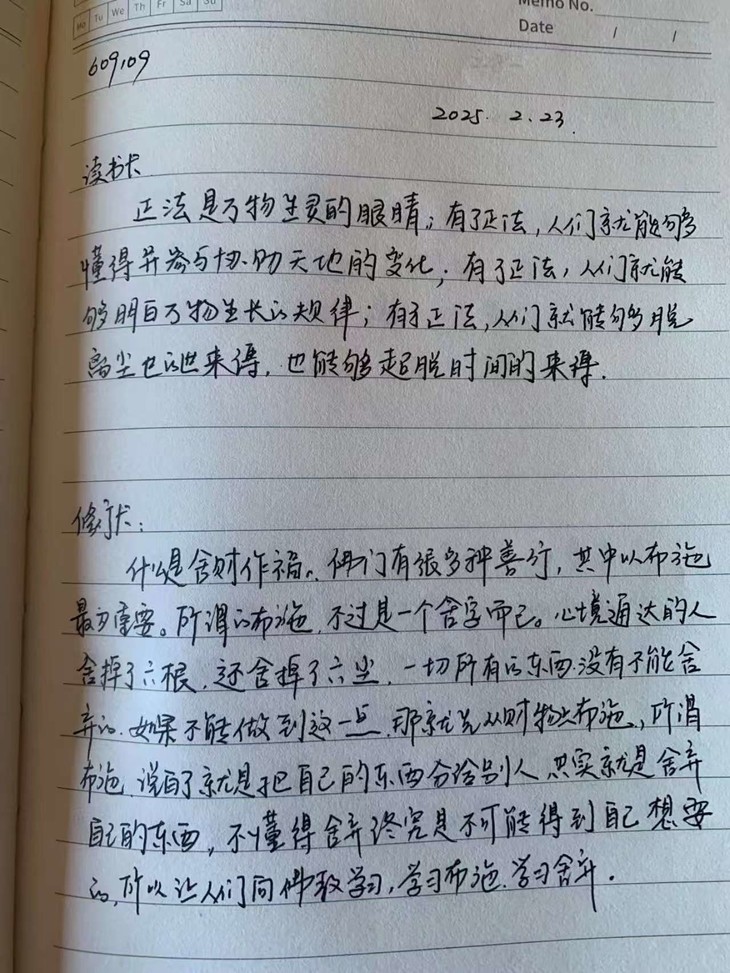 Mo Tu We Th Fr Sa Su
Memo No.
Date / /
609109
2025. 2. 23.
读书
正法是万物生灵的眼睛；有了正法，人们就能够
懂得并参与协助天地的变化；有了正法，人们就能
够明白万物生长的规律；有了正法，人们就能够脱
离尘世的迷来得，也能够超脱时间的来得.
修行：
什么是舍财作福。佛门有很多种善行，其中以布施
最为重要。所谓的布施，不过是一个舍字而已。心境通达的人
舍掉了六根，还舍掉了六尘，一切所有的东西没有不能舍
弃的.如果不能做到这一点，那就先从财物上布施，所谓
布施，说白了就是把自己的东西分给别人，其实就是舍弃
自己的东西，不懂得舍弃终究是不可能得到自己想要
的，所以让人们向佛教学习，学习布施、学习舍弃.